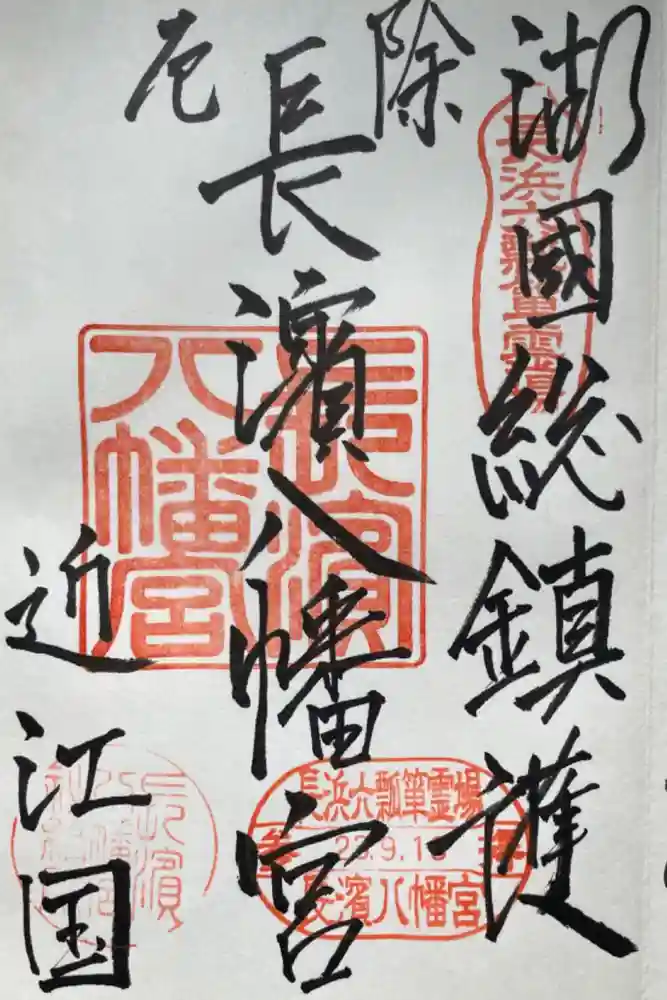 湖國総鎮護
長浜六瓢箪霊場
除
厄
長濱八幡宮
長濱
八幡宮
近江国
長浜六瓢箪霊場
参
拝
長濱八幡宮
長濱